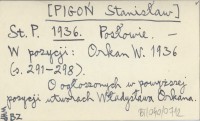 [PIGOŃ Stanisław]
St. P. 1936. Posłowie. —
W pozycji: Orkan W. 1936
(s. 291-298).
O ogłoszonych w powyższej
pozycji utworach Władysława Orkana.
BZ